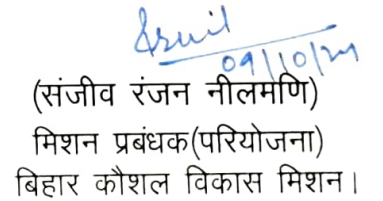 09/10/24
(संजीव रंजन नीलमणि)
मिशन प्रबंधक(परियोजना)
बिहार कौशल विकास मिशन।